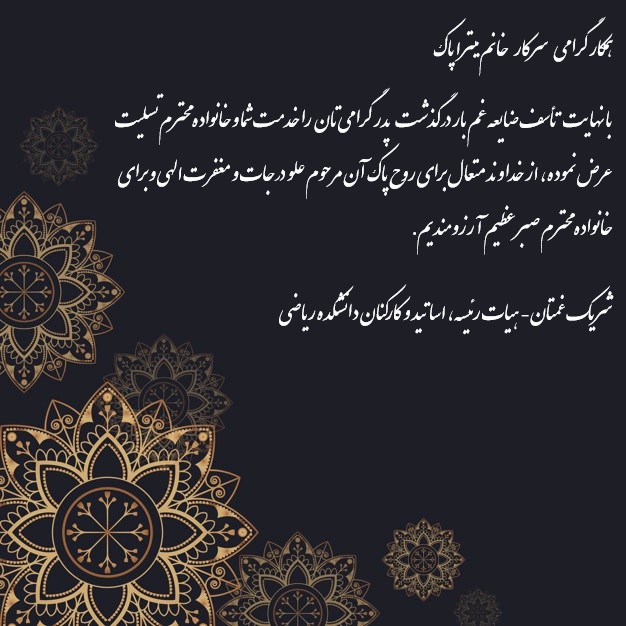 همکار گرامی سرکار خانم میترا پاک
با نهایت تأسف ضایعه غم بار درگذشت پدر گرامی تان را خدمت شما و خانواده محترم تسلیت
عرض نموده، از خداوند متعال برای روح پاک آن مرحوم علو درجات و مغفرت الهی و برای
خانواده محترم صبر عظیم آرزومندیم.
شریک غمتان- هیات رئیسه، اساتید و کارکنان دانشکده ریاضی